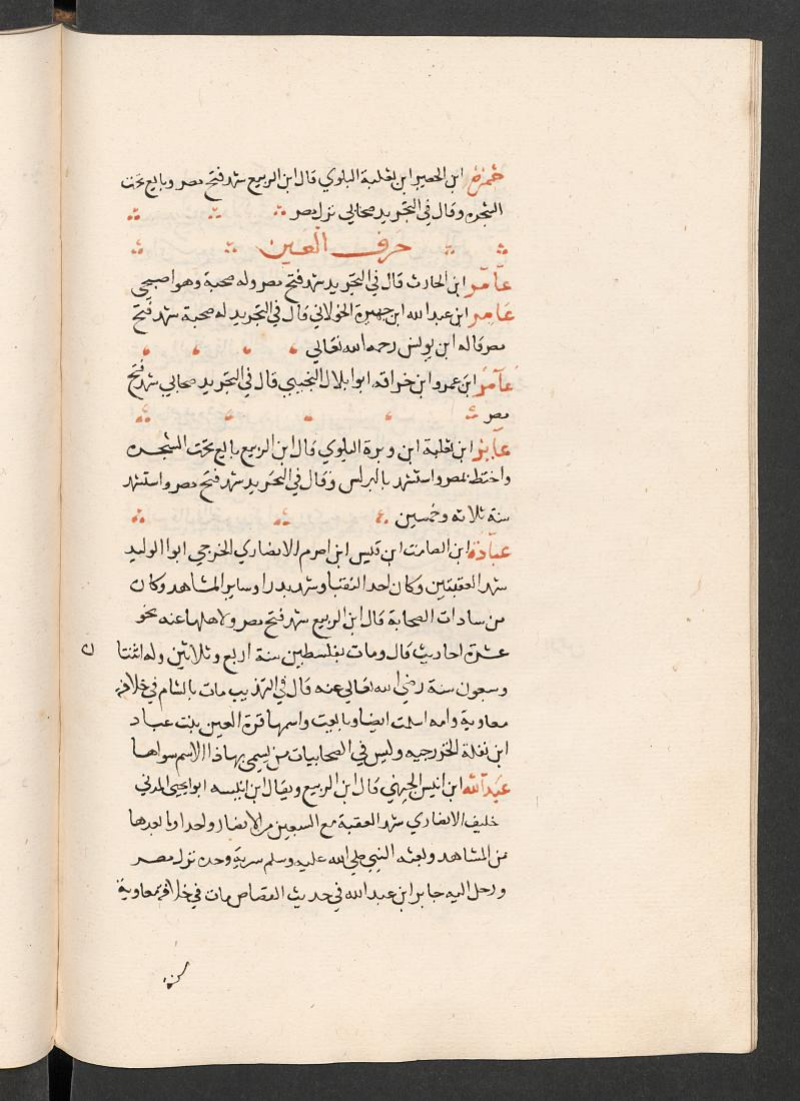 ضمرة ابن الحصين ابن ثعلبة البلوي قال ابن الربيع شهد فتح مصر وبايع تحت
الشجره وقال في التجريد صحابي نزل مصر
حرف العين
عامر ابن الحارث قال في التجريد شهد فتح مصر وله صحبة وهو اصبحي
عامر ابن عبد الله ابن جهيرة الخولاني قال في التجريد له صحبة شهد فتح
مصر قاله ابن يونس رحمه الله تعالى
عامر ابن عمرو ابن حذاقه ابوا بلال التجيبي قال في التجريد صحابي شهد فتح
مصر
عابر ابن ثعلبة ابن وبرة البلوي قال ابن الربيع بايع تحت الشجره
واختط بمصر واستشهد بالبرلس وقال في التجريد شهد فتح مصر واستشهد
سنة ثلاثه وخمسين
عبادة ابن الصامت ابن قيس ابن اصرم الانصاري الخزرجي ابوا الوليد
شهد العقبتين وكان احد النقبا وشهد بدرا وساير المشاهد وكان
من سادات الصحابة قال ابن الربيع شهد فتح مصر ولاهلها عنه نحو
عشرة احاديث قال ومات بفلسطين سنة اربع وثلاثين وله اثنتا
وسبعون سنة رضي الله تعالى عنه قال في التهذيب مات بالشام في خلافة
معاوية وامه اسلمت ايضا وبايعت واسمها قرة العين بنت عباد
ابن نضلة الخزرجيه وليس في الصحابيات من يسمى بهاذا الاسم سواها
عبد الله ابن انيس الجهني قال ابن الربيع ويقال ابن انيسه ابو يحيى المدني
حليف الانصاري شهد العقبة مع السبعين من الانصار واحدا وما بعدها
من المشاهد وبعثه النبي صلى الله عليه وسلم سرية وحده نزل مصر
ورحل اليه جابر ابن عبد الله في حديث القصاص مات في خلافة معاوية
سنة